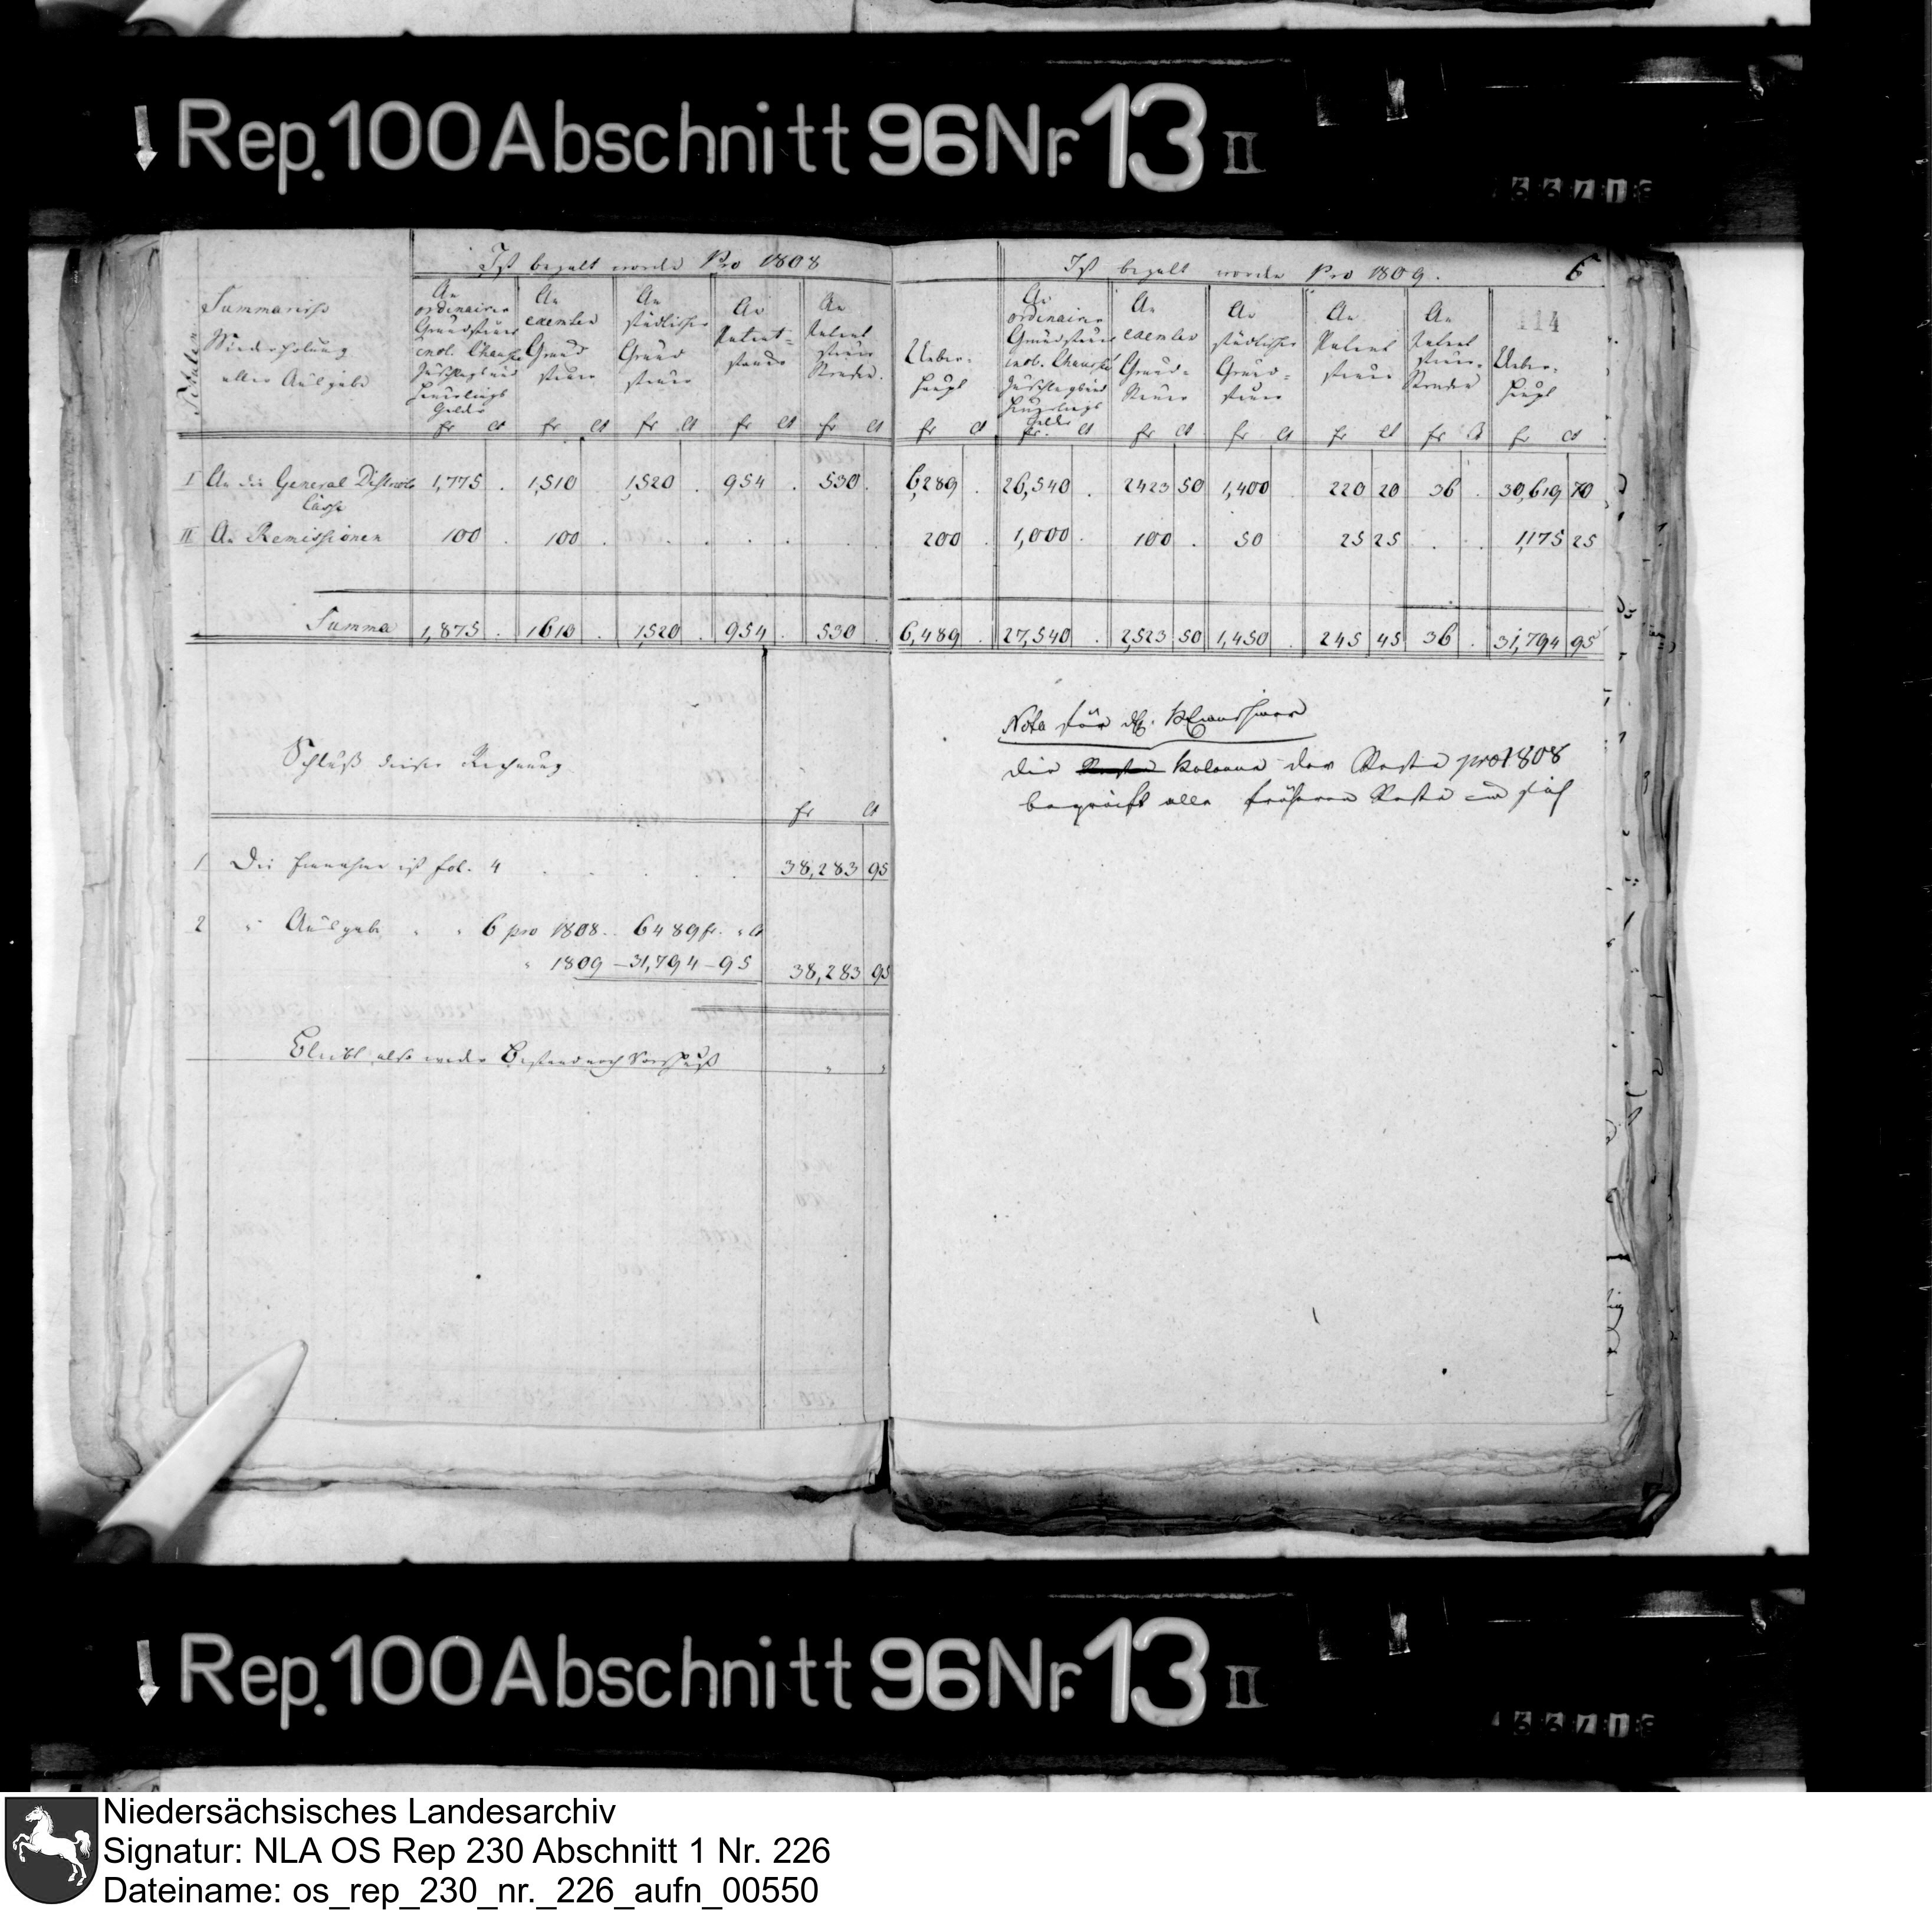 Rep. 100 Abschnitt 96 Nr. 13 II
6 6 7 1 8
Ist bezalt worden Pro 1808
Ist bezalt worden Pro 1809.
6
114
Summarische
Wiederholung
aller Ausgabe
An ordinairer Grundsteuer incl.
An exemter Grund steuer
An städtischer Grund steuer
An Patent-steuer
An Patent steuer
Ueber-haupt
An ordinairer Grundsteuer incl.
An exemter Grund-steuer
An städtischer Grund-steuer
An Patent steuer
An Patent steuer-
Ueber-haupt
fr ct fr ct fr ct fr ct fr ct fr ct fr. ct fr ct fr ct fr ct fr ct fr ct
I An die General Districts 1,775 . 1,510 1,520 . 954 . 530 . 6,289 . 26,540 . 2423 50 1,400 220 20 36 . 30,619 70
Casse
II An Remissionen 100 . 100 . . . . . . . 200 . 1,000 . 100 . 50 25 25 . . 1,175 25
Summa 1,875 . 1610 . 1,520 . 954 . 530 . 6,489 . 27,540 . 2,523 50 1,450 . 245 45 36 . 31,794 95
Schluß dieser Rechnung
fr ct
1 Die Einnahme ist fol. 4 38,283 95
2 " Ausgabe " " 6 pro 1808. 6489 fr. " ct
" 1809 – 31,794 – 95 38,283 95
Bleibt also weder Bestand noch Vorschuß " "
Nota für
die Kolonne der Reste pro 1808
begreift alle früheren Reste in sich
Rep. 100 Abschnitt 96 Nr. 13 II
6 6 7 1 8
Niedersächsisches Landesarchiv
Signatur: NLA OS Rep 230 Abschnitt 1 Nr. 226
Dateiname: os_rep_230_nr._226_aufn_00550